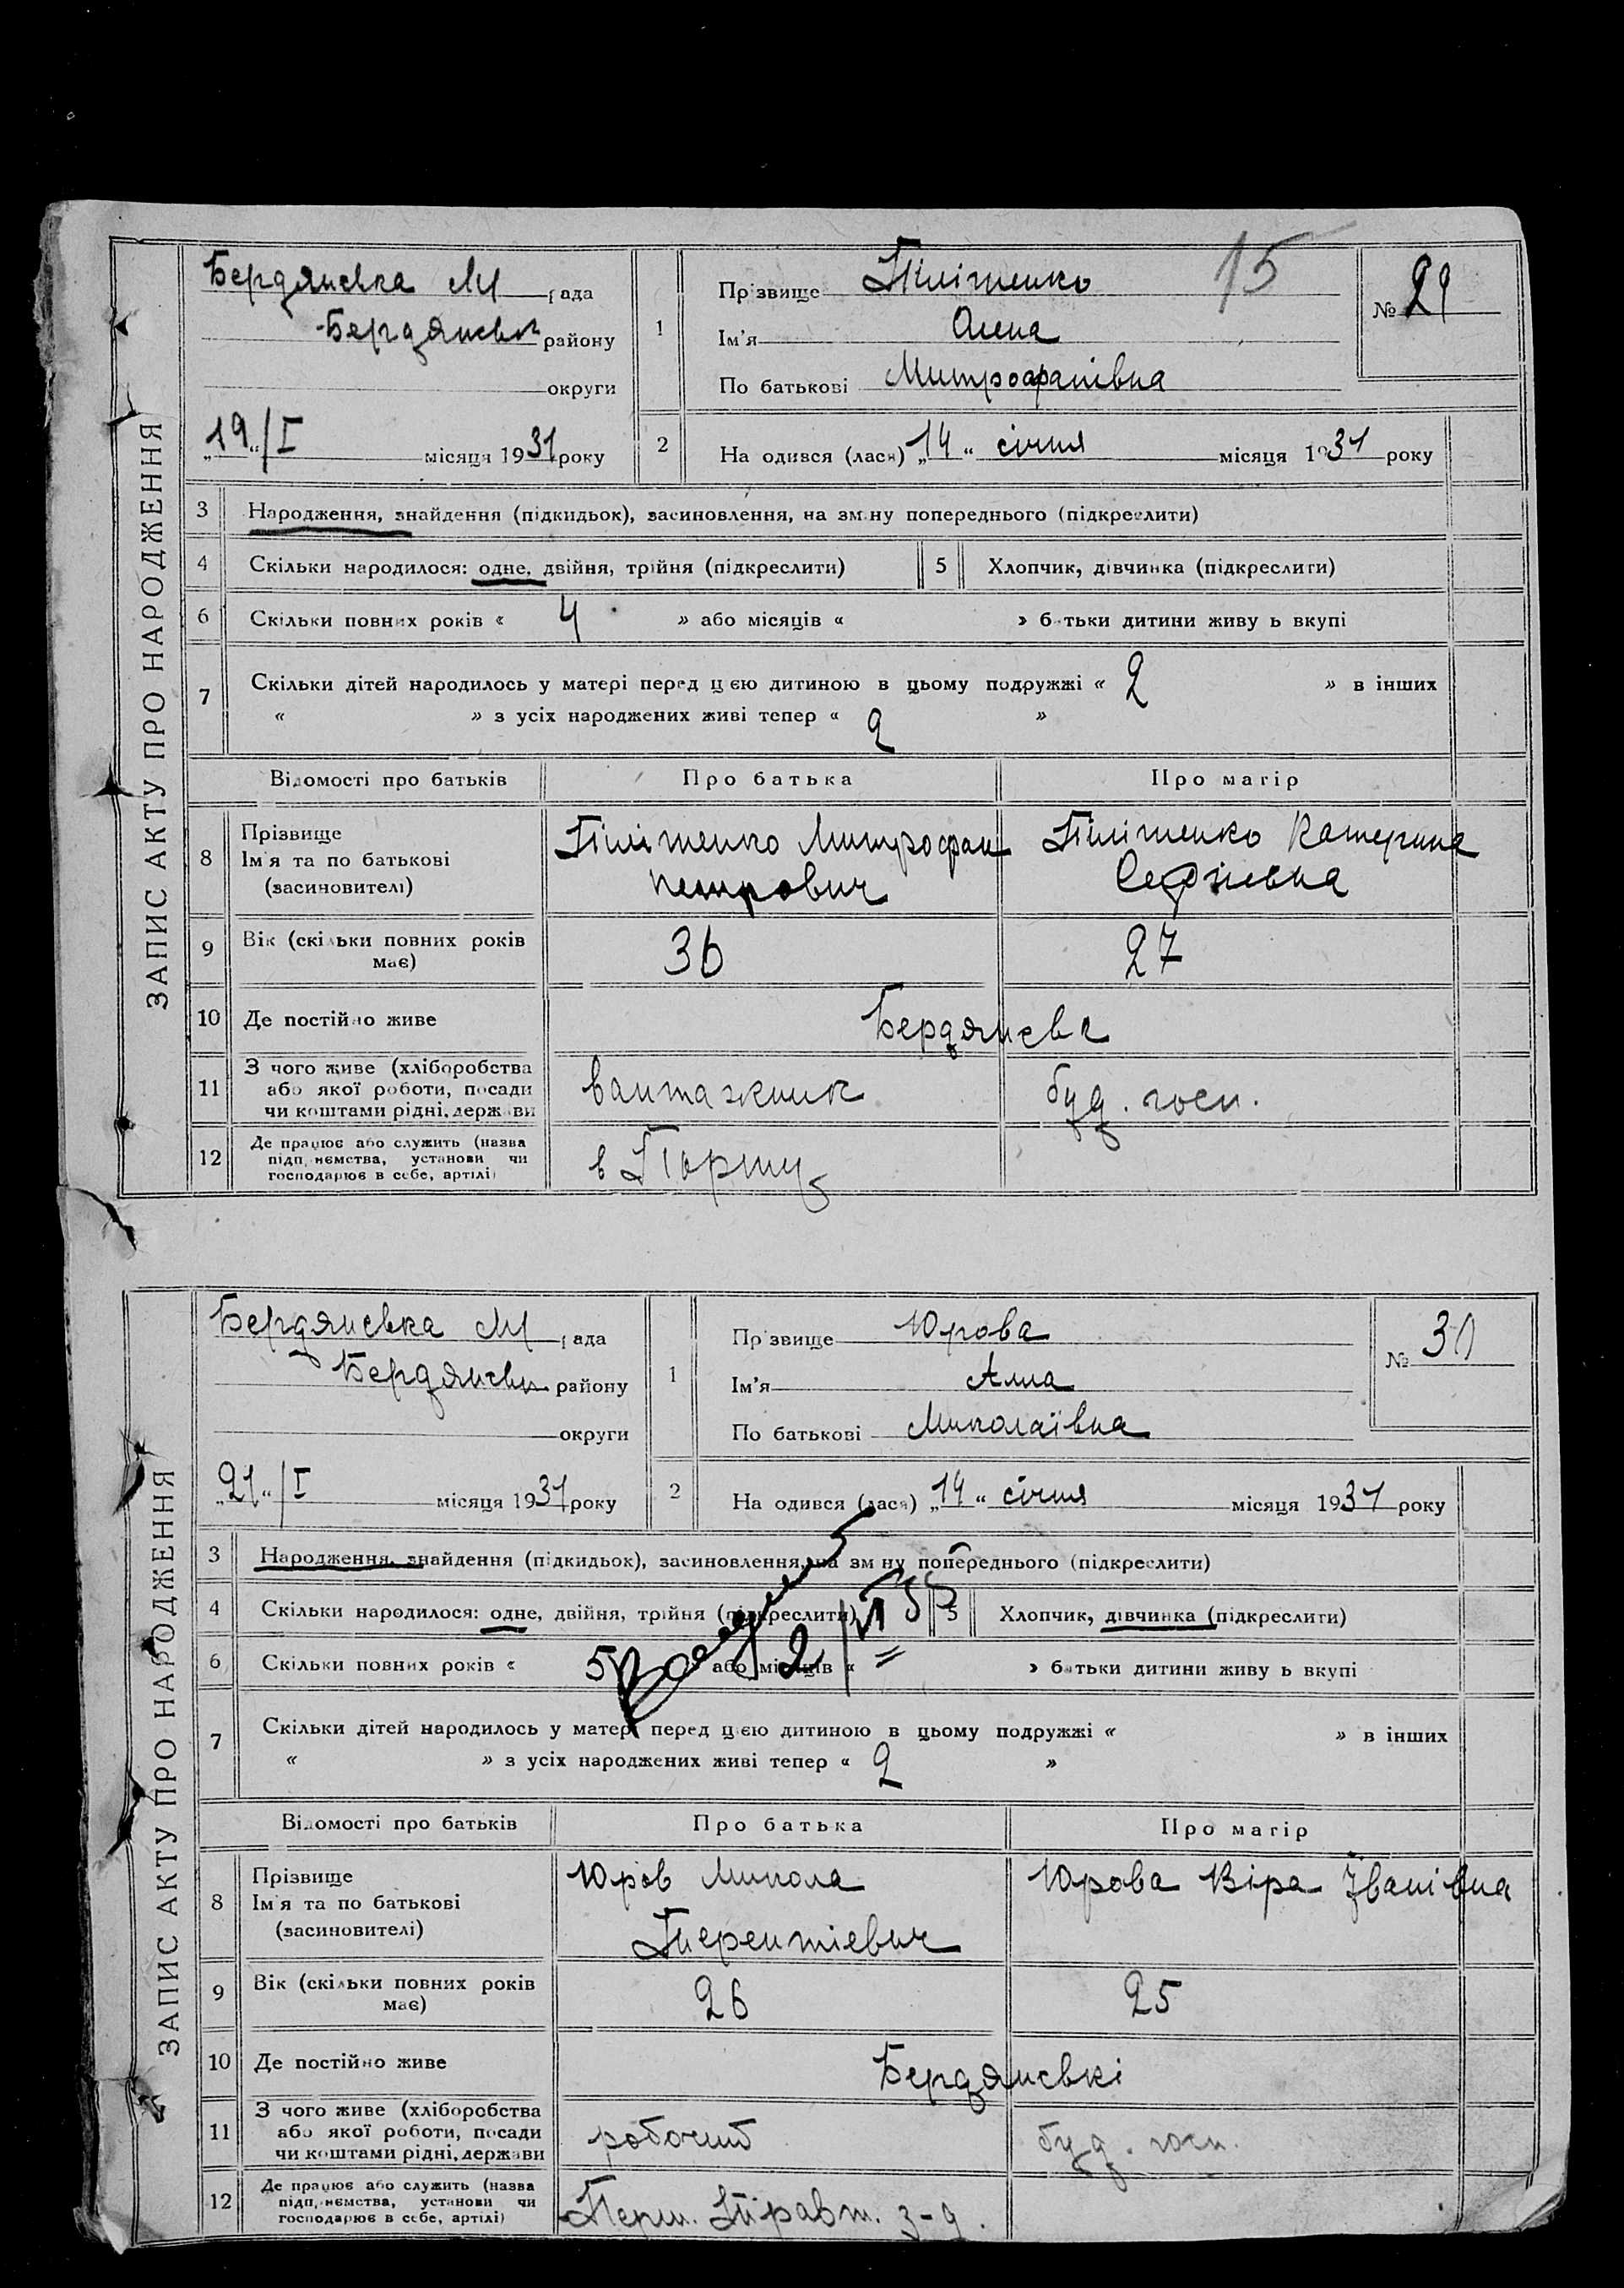 ЗАПИС АКТУ ПРО НАРОДЖЕННЯ
Бердянська М рада
Бердянськ району
округи
„19“/I місяця 1931 року
15
№ 29
1 Прізвище Піліпенко
Ім'я Олена
По батькові Митрофанівна
2 Народився (лася) „14“ січня місяця 1931 року
3 Народження, знайдення (підкидьок), засиновлення, на зміну попереднього (підкреслити)
4 Скільки народилося: одне, двійня, трійня (підкреслити) 5 Хлопчик, дівчинка (підкреслити)
6 Скільки повних років « 4 » або місяців « » батьки дитини живуть вкупі
7 Скільки дітей народилось у матері перед цією дитиною в цьому подружжі « 2 » в інших
« » з усіх народжених живі тепер « 2 »
Відомості про батьків Про батька Про матір
8 Прізвище Ім'я та по батькові (засиновителі) Піліпенко Митрофан Петрович Піліпенко Катерина Сергіевна
9 Вік (скільки повних років має) 36 27
10 Де постійно живе Бердянськ
11 З чого живе (хліборобства або якої роботи, посади чи коштами рідні, держави вантажник буд. госп.
12 Де працює або служить (назва підприємства, установи чи господарює в себе, артілі) в Порту
ЗАПИС АКТУ ПРО НАРОДЖЕННЯ
Бердянська М рада
Бердянськ району
округи
„21“/I місяця 1931 року
№ 30
1 Прізвище Юрова
Ім'я Алла
По батькові Миколаївна
2 Народився (лася) „14“ січня місяця 1931 року
3 Народження, знайдення (підкидьок), засиновлення, на зміну попереднього (підкреслити)
4 Скільки народилося: одне, двійня, трійня (підкреслити) 5 Хлопчик, дівчинка (підкреслити)
6 Скільки повних років « 5 » або місяців « » батьки дитини живуть вкупі
7 Скільки дітей народилось у матері перед цією дитиною в цьому подружжі « » в інших
« » з усіх народжених живі тепер « 2 »
Відомості про батьків Про батька Про матір
8 Прізвище Ім'я та по батькові (засиновителі) Юров Микола Терентіевич Юрова Віра Іванівна
9 Вік (скільки повних років має) 26 25
10 Де постійно живе Бердянські
11 З чого живе (хліборобства або якої роботи, посади чи коштами рідні, держави робочий буд. госп.
12 Де працює або служить (назва підприємства, установи чи господарює в себе, артілі) Перш. Травн. з-д.